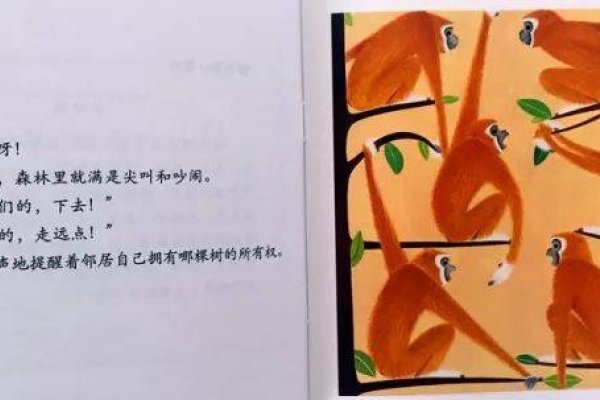 呀！
，森林里就满是尖叫和吵闹。
们的，下去！”
的，走远点！”
声地提醒着邻居自己拥有哪棵树的所有权。